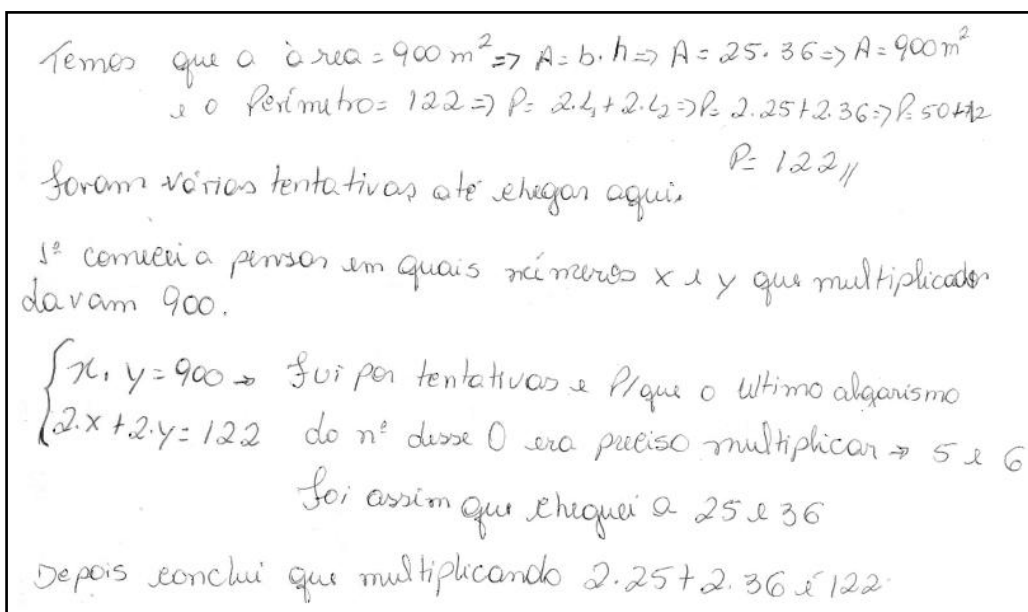 Temos que a àrea = 900 m² => A = b. h => A = 25. 36 => A = 900 m²
e o Perímetro = 122 => P = 2.L₁ + 2.L₂ => P = 2.25 + 2.36 => P = 50 + 72
P = 122 //
foram vários tentativas até chegar aqui.
1º comecei a pensar em quais números x e y que multiplicados
davam 900.
{ x. y = 900 → fui por tentativas e P/que o ultimo algarismo
2.x + 2.y = 122 do nº desse 0 era preciso multiplicar → 5 e 6
foi assim que cheguei a 25 e 36
Depois conclui que multiplicando 2.25 + 2.36 é 122.